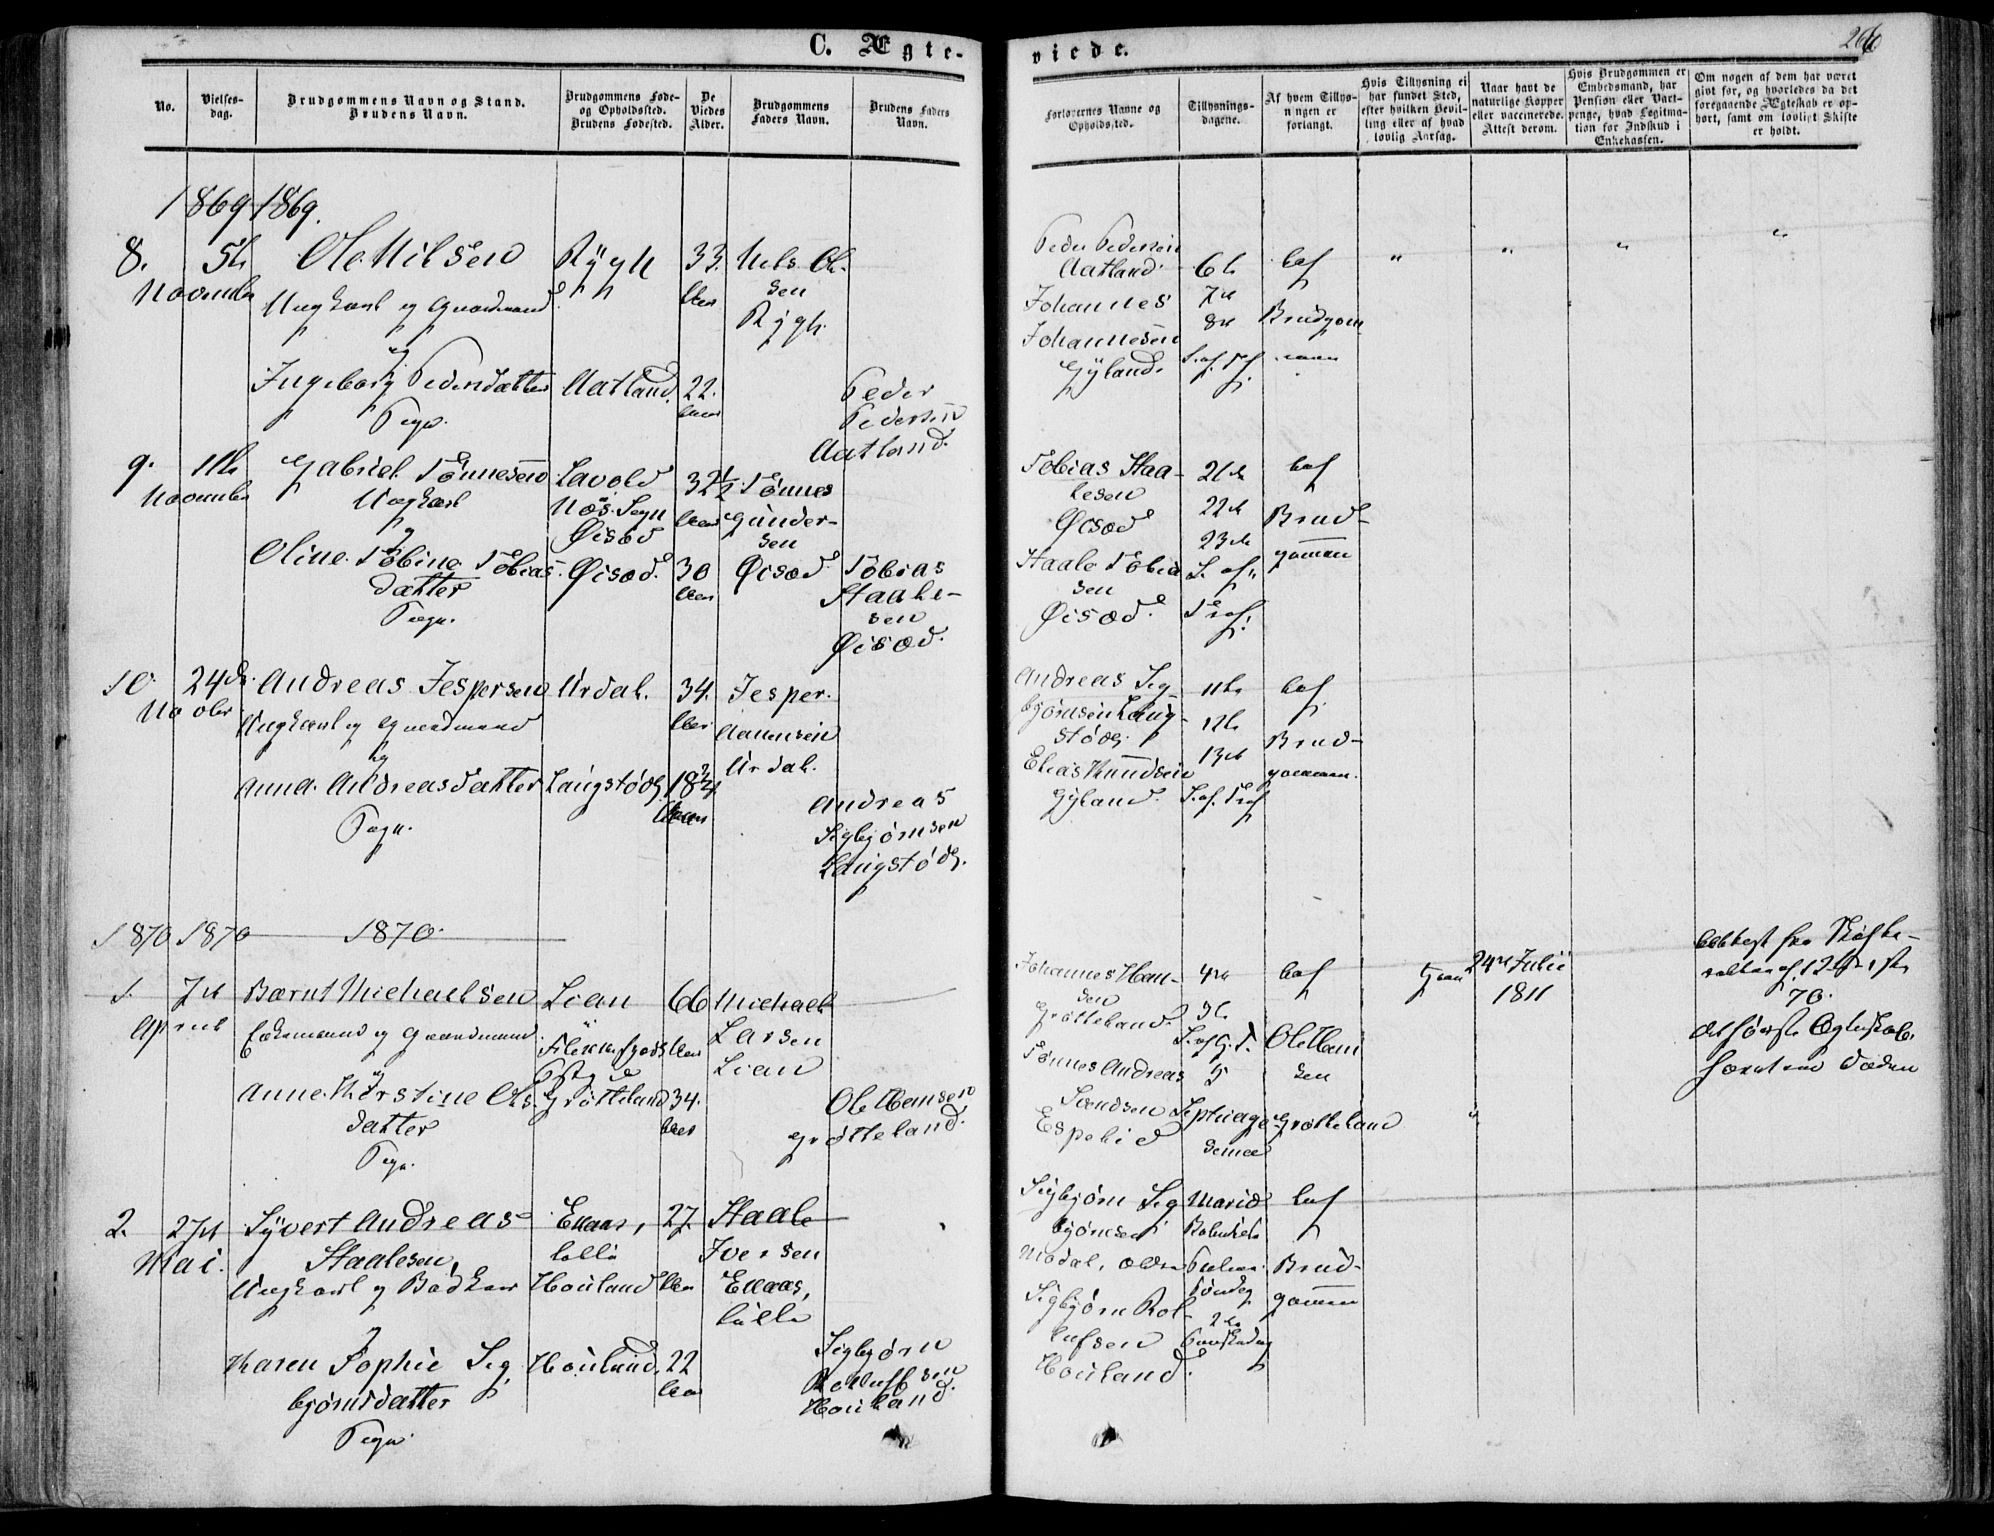 C. Ægte-
viede.
No.
Vielses-
dag.
Brudgommens Navn og Stand.
Brudens Navn.
Brudgommens Føde-
og Opholdssted.
Brudens Fødested.
De
Viedes
Alder.
Brudgommens
Faders Navn.
Brudens Faders
Navn.
Forlovernes Navne og
Opholdssted.
Tillysnings-
dagene.
Af hvem Tillys-
ningen er
forlangt.
Hvis Tillysning ei
har fundet Sted,
efter hvilken Bevil-
ling eller af hvad
lovlig Aarsag.
Naar havt de
naturlige Kopper
eller vaccinerede.
Attest derom.
Hvis Brudgommen er
Embedsmand, har
Pension eller Vart-
penge, hvad Legitima-
tion for Indskud i
Enkekassen.
Om nogen af dem har været
gift før, og hvorledes da det
foregaaende Ægteskab er op-
hørt, samt om lovligt Skifte
er holdt.
1869 1869.
8.
5te
November
Ole Nilsen
Ungkarl og Gaardmand
og
Ingeborg Pedersdatter
Pige.
Rygh
Aatland.
33.
Aar
22.
Aar
Nils Ol-
sen
Rygh.
Peder
Pedersen
Aatland.
Peder Pedersen
Aatland.
Johannes
Johannesen
Gyland.
6te
7de
8de
S. af Tref.
af
Brudgom-
men
9.
11te
November
Gabriel Tønnesen
Ungkarl
og
Oline Tobine Tobias-
datter
Pige.
Lavold
Næs Sogn
Øisæd
Øisæd.
32½
Aar
30
Aar
Tønnes
Gunder-
sen
Øisæd
Tobias
Staale-
sen
Øisæd.
Tobias Staa-
lesen
Øisæd
Staale Tobia
sen
Øisæd.
21de
22de
23de
S. af
Tref.
af
Brud-
gommen
10
24de
Novbr
Andreas Jespersen
Ungkarl og Gaardmand
og
Anna Andreasdatter
Pige.
Urdal.
Langstødl
34.
Aar
18¾
Aar
Jesper
Aanensen
Urdal.
Andreas
Sigbjørnsen
Langstødl.
Andreas Sig-
bjørnsen Lang-
stødl.
Elias Knudsen
Gyland.
11te
12te
13de
S. af Tref
af
Brud-
gommen.
1870 1870 1870.
1.
7de
April
Bærnt Michaelsen
Enkemand og Gaardmand
og
Anne Kirstine Ols-
datter
Pige.
Lian
Flekkefjords
Grøtteland
66
Aar
34.
Aar
Michael
Larsen
Lian
Ole Hansen
Grøtteland.
Johannes Han-
sen
Grøtteland.
Tønnes Andreas
Svendsen
Espelid
4de
5
Septuage
simæ
af
Ole Han
sen
Grøtteland
24de Julii
1811
Attest fra Skifte-
retten af 12te
70.
det første Ægteskab
hævet ved Døden
2.
27de
Mai.
Syvert Andreas
Staalesen,
Ungkarl og Bødker
og
Karen Sophie Sig-
bjørnsdatter
Pige.
Eeaas,
lille
Houland
Houland.
27.
Aar
22
Aar
Staale
Iversen
Eeaas,
lille
Sigbjørn
Rolluffsen
Houland.
Sigbjørn Sig-
bjørnsen
Modal,
Sigbjørn Rol-
lufsen
Houland.
Mariæ
Palme
Søndag
2den
Paaskedag
af
Brud-
gommen